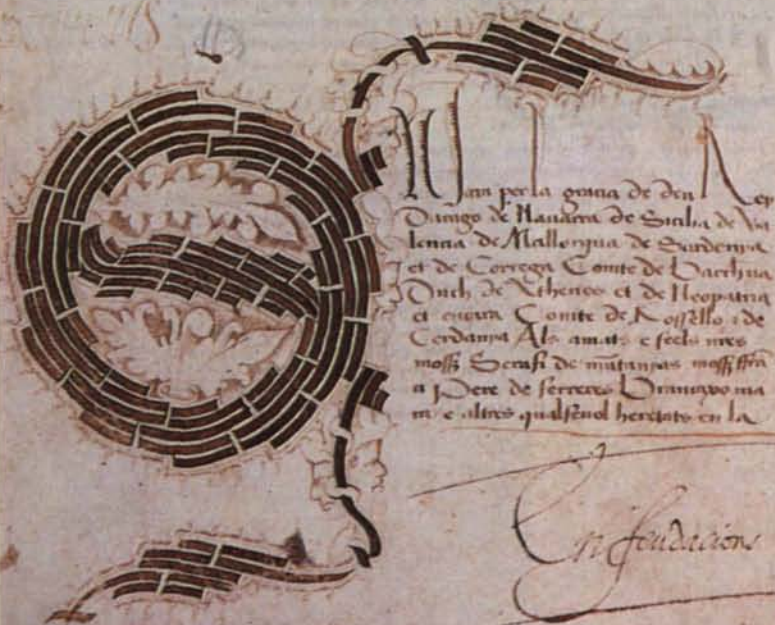 Joan per la gracia de deu Rey
Darago de Nauarra de Sicilia de Va
lencia de Mallorqua de Sardenya
et de Corcega Comte de Barchna
Duch de Athenes et de Neopatria
et encara Comte de Rossello e de
Cerdanya Als amats e feels nres
moss Serafi de mossen
Pere de ferreres
e altres qualseuol heretats en la
Enfeudacions